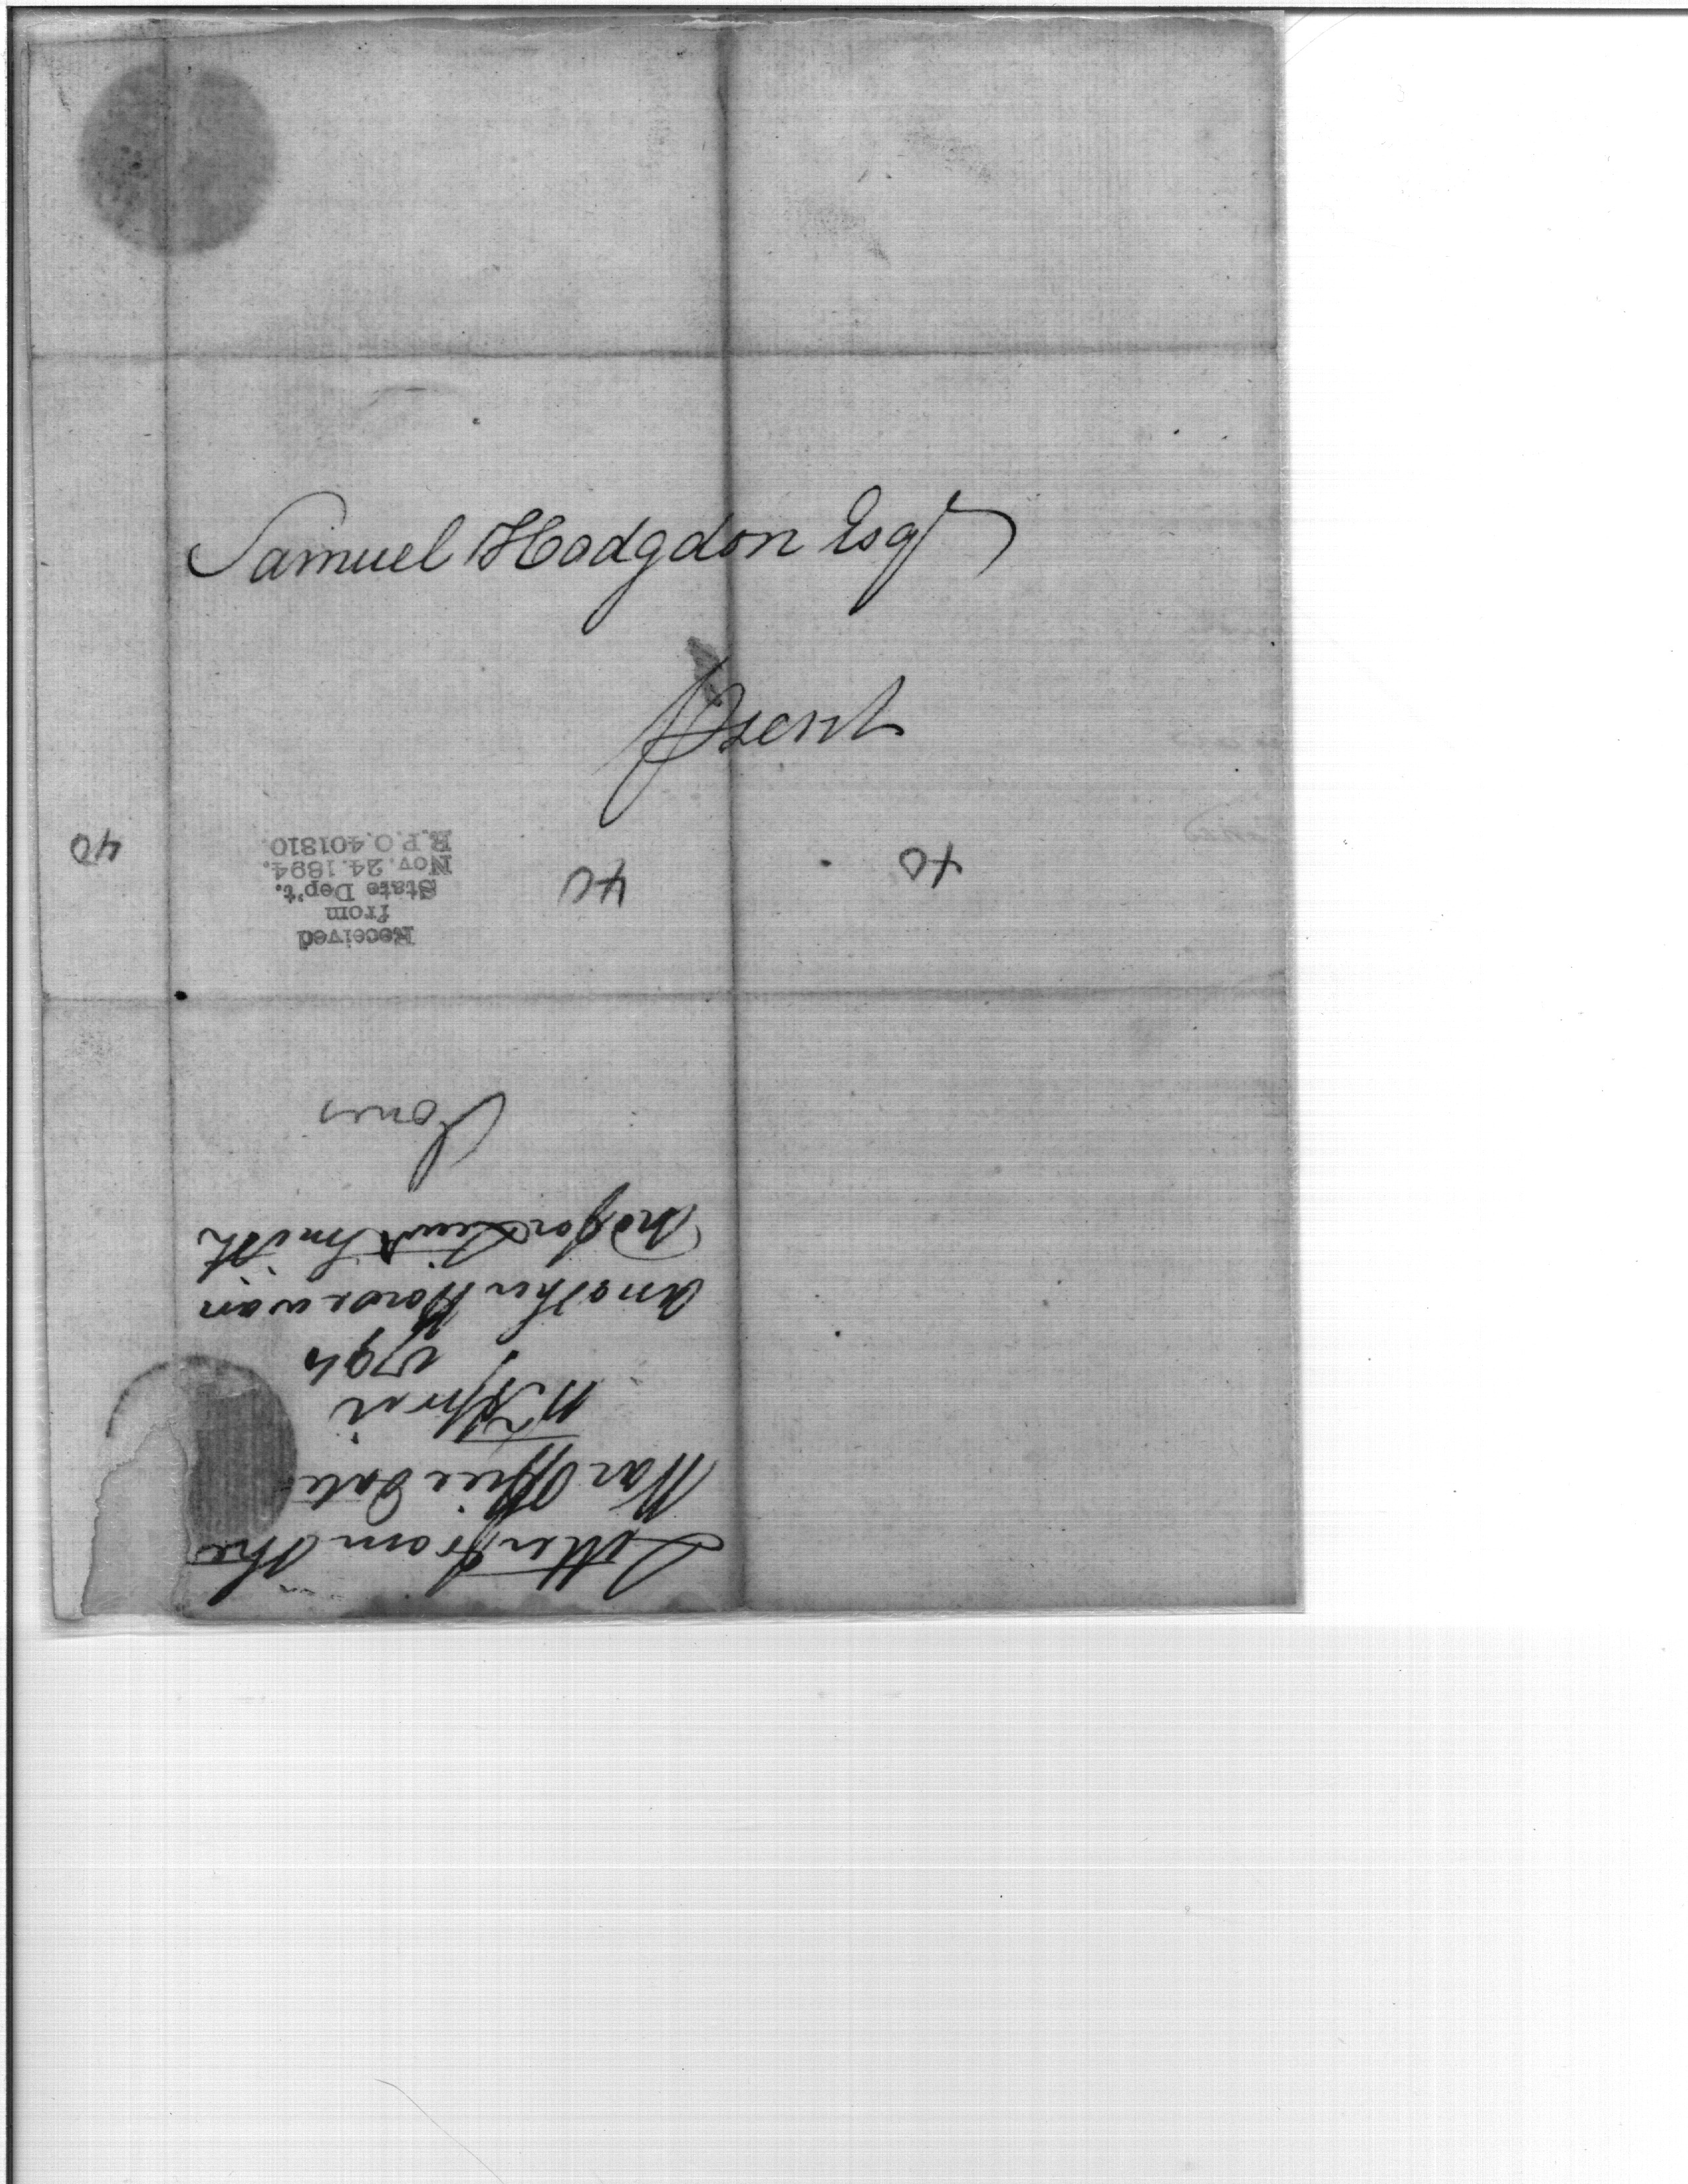 Samuel Hodgdon Esqr
Present
40
40
40
Received
from
State Dep't.
Nov. 24. 1894.
R.P.O. 401810.
Letter from the
War Office Date
11 April
1794
another
and for Lieut Smith
Jones